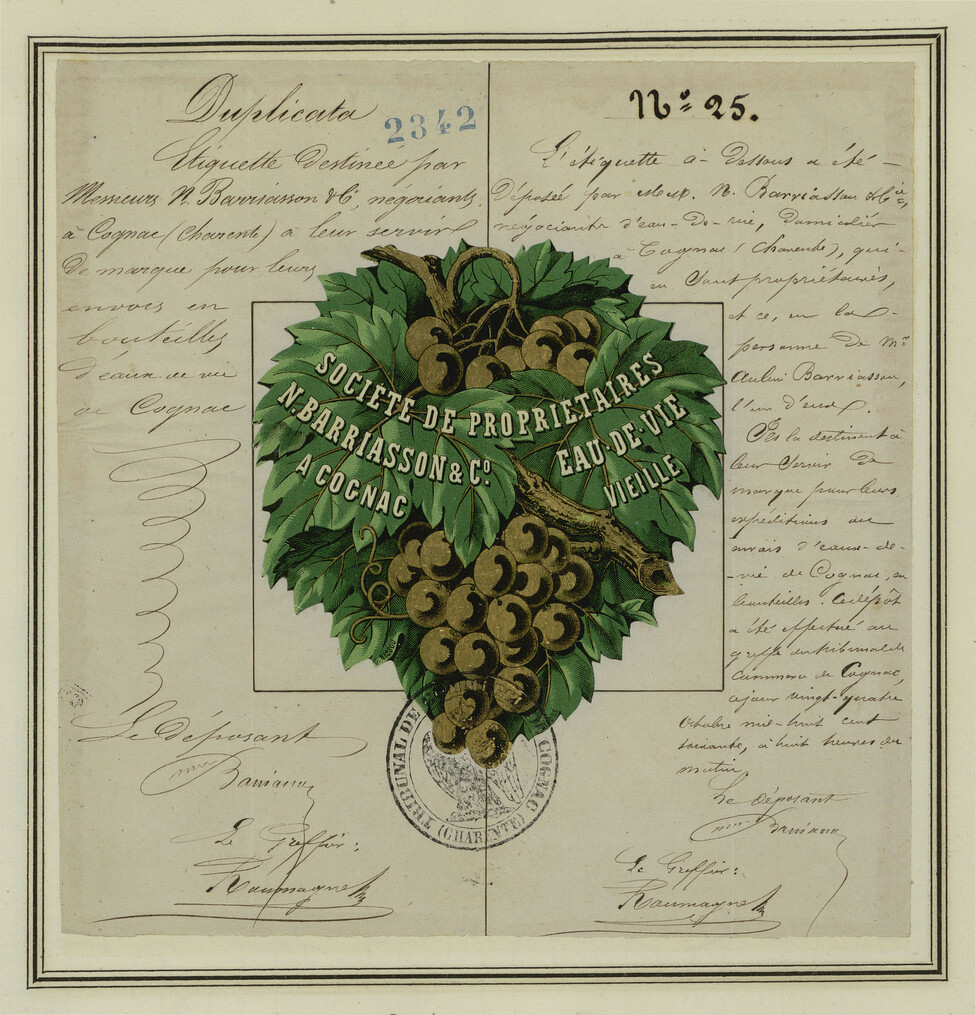 Duplicata
2342
Etiquette destinée par
Messieurs N. Barriasson & Cie, négociants
à Cognac (Charente) à leur servir
de marque pour leurs
envois en
bouteilles
d'eaux de vie
de Cognac
Le déposant
Barriasson
Le Greffier:
No 25.
L'étiquette ci-dessous a été
déposée par MM. N. Barriasson & Cie,
négociants d'eau-de-vie, domiciliés
à Cognac (Charente), qui
en sont propriétaires,
et ce, en la
personne de Mr
Barriasson,
l'un d'eux.
Ils la destinent à
leur servir de
marque pour leurs
expéditions ou
envois d'eaux-de-
-vie de Cognac, en
bouteilles. Ce dépôt
a été effectué au
greffe du tribunal de
Commerce de Cognac,
ce jour vingt-quatre
Octobre mil-huit cent
soixante, à huit heures du
matin.
Le déposant
Barriasson
Le Greffier:
SOCIÉTÉ DE PROPRIETAIRES
N. BARRIASSON & Co.
A COGNAC
EAU-DE-VIE
VIEILLE
TRIBUNAL DE
COGNAC
(CHARENTE)